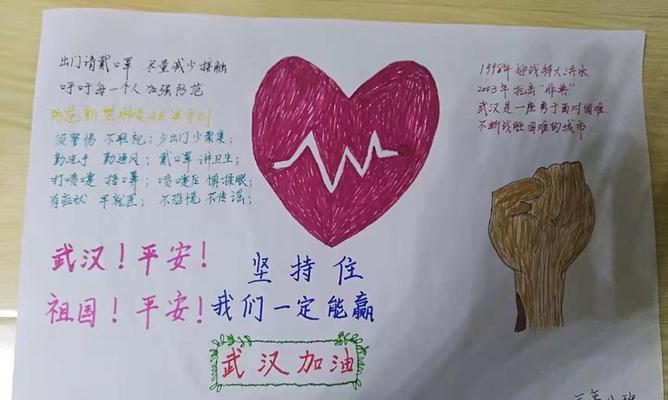 出门请戴口罩 尽量减少接触
呼吁每一个人 加强防范
须警惕 不轻视；少出门 少聚集；
勤洗手 勤通风；戴口罩 讲卫生；
打喷嚏 捂口鼻；喷嚏后 慎揉眼；
有症状 早就医；不恐慌 不传谣；
1998年 迎战特大洪水
2003年 抗击“非典”
武汉是一座勇于面对困难
不断战胜困难的城市
武汉！平安！
祖国！平安！
坚持住
我们一定能赢
武汉加油